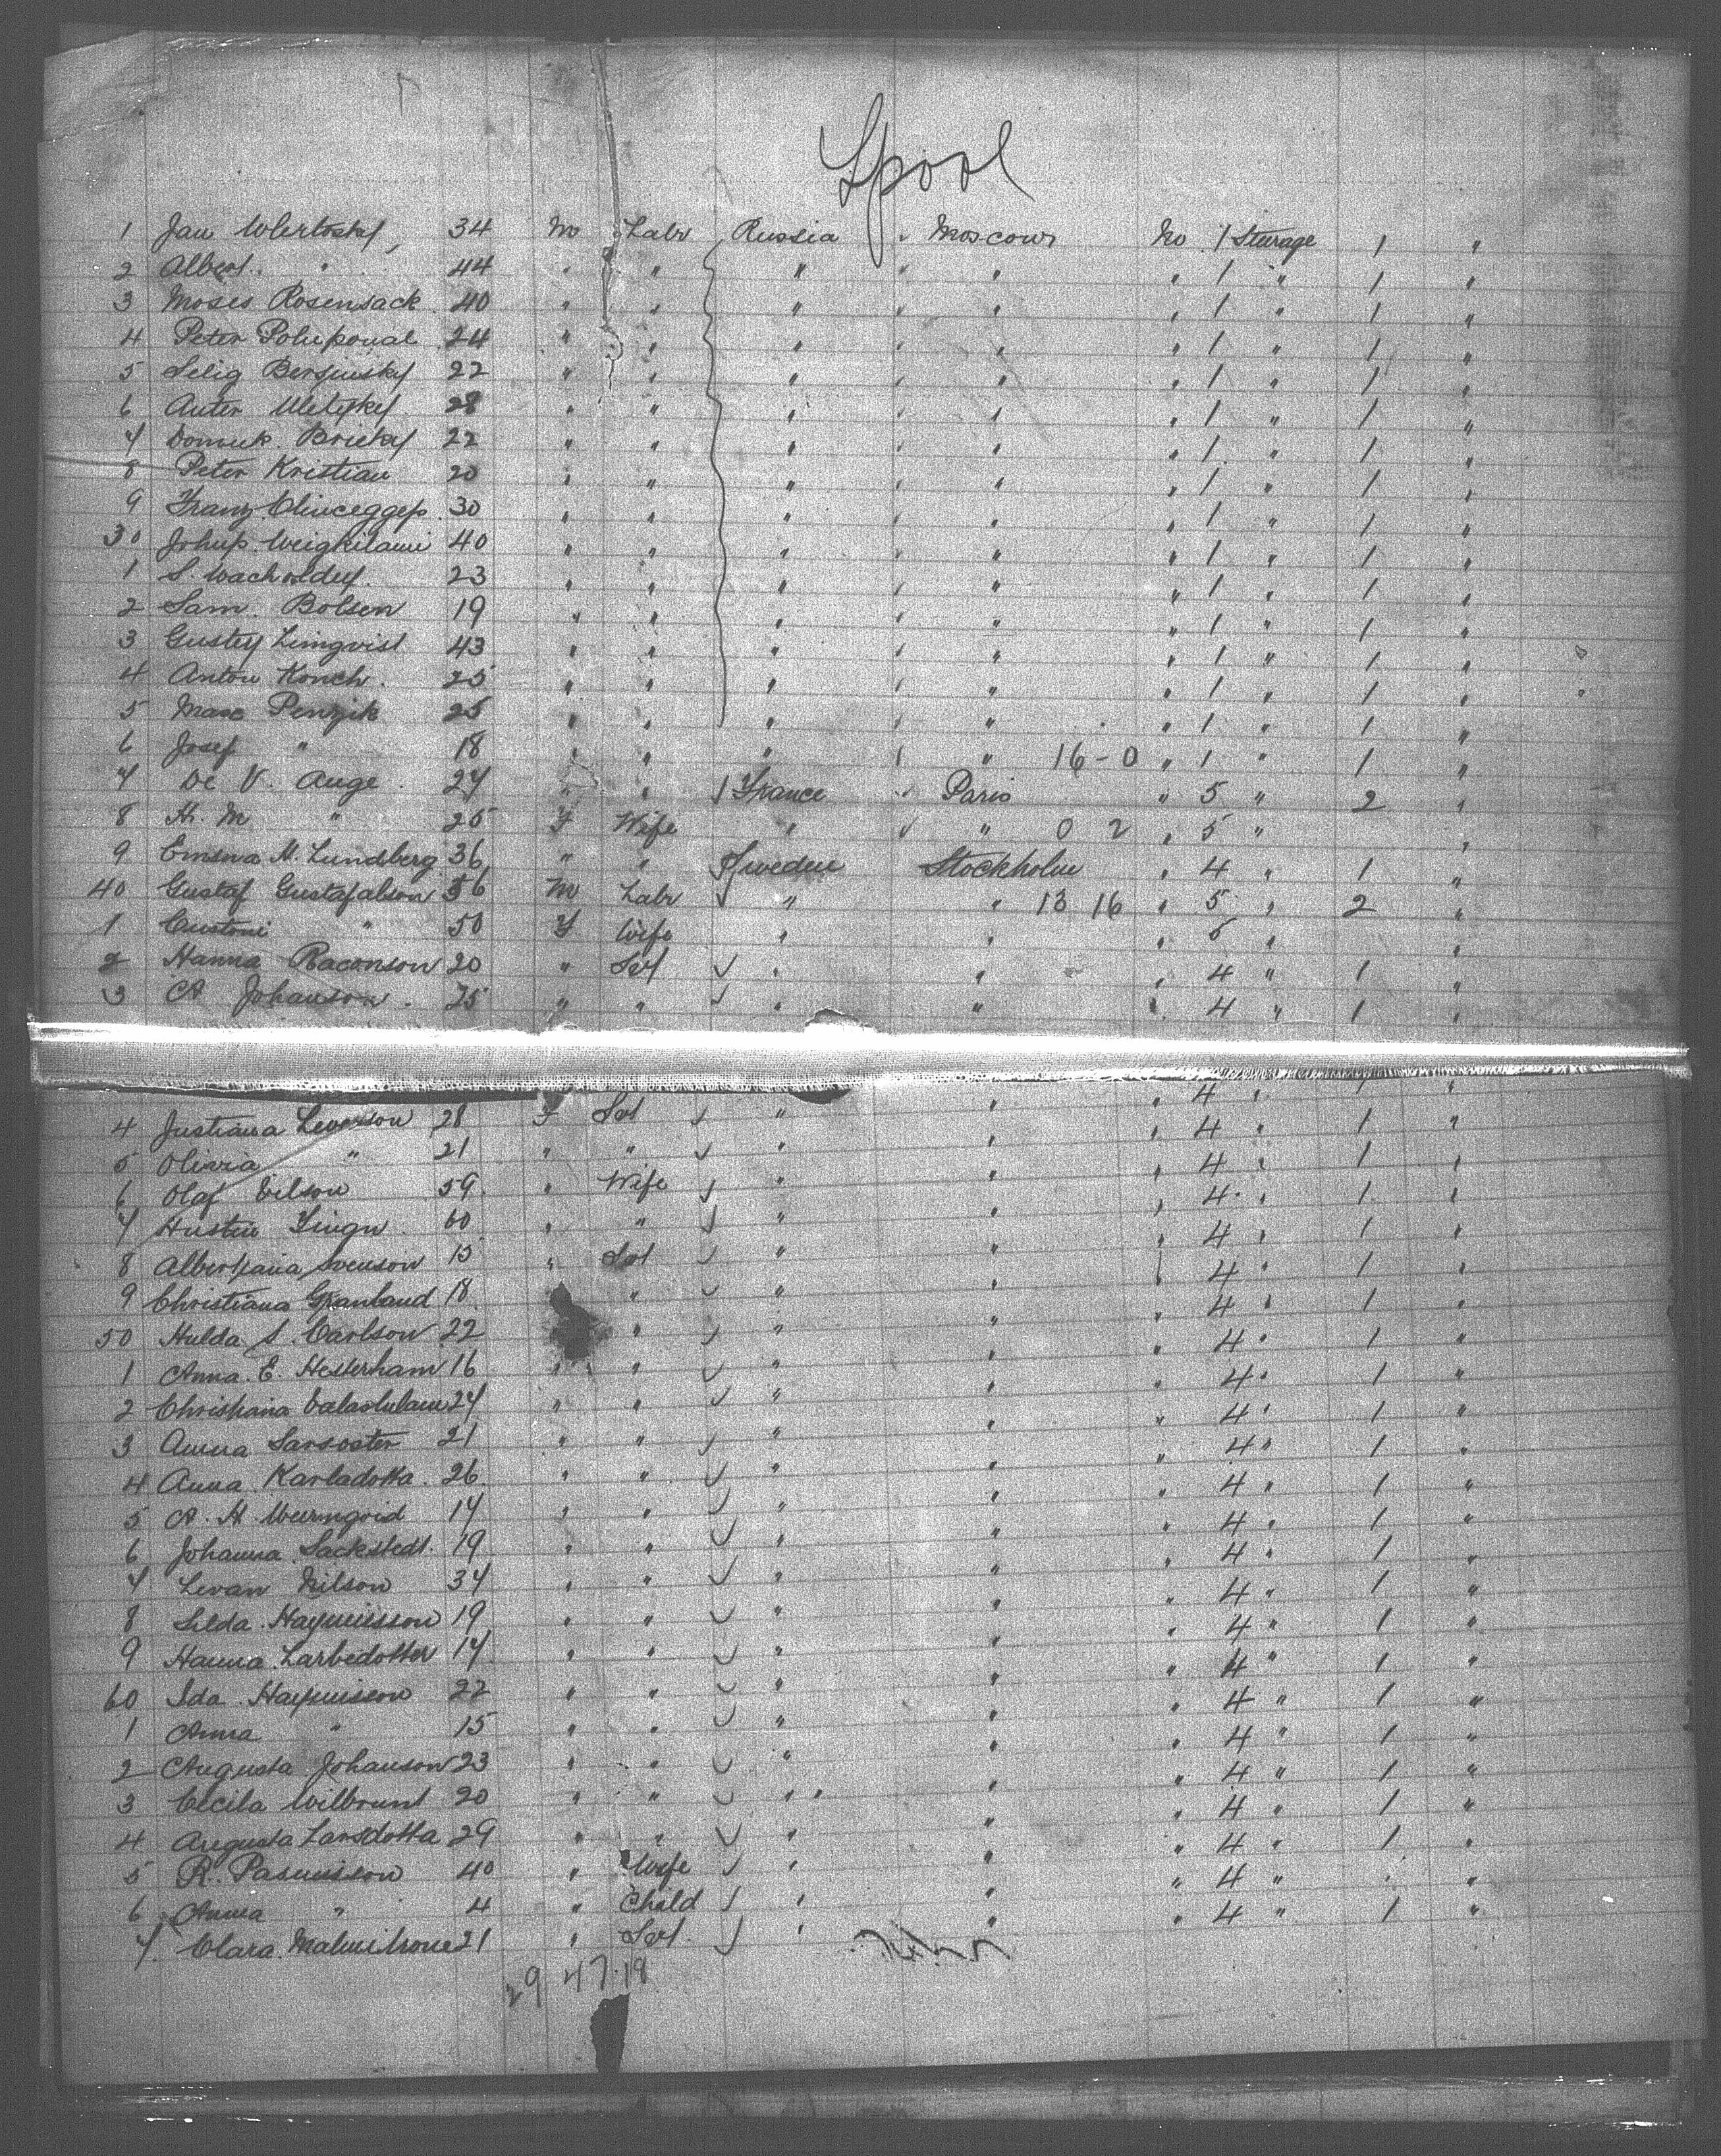 Lpool
1 Jan Wlertosky, 34 M Labr Russia Moscow No 1 Sterage 1 "
2 Albert " 44 " " " " " 1 " 1 "
3 Moses Rosensack 40 " " " " " 1 " 1 "
4 Peter 24 " " " " " 1 " 1 "
5 Selig 22 " " " " " 1 " 1 "
6 Anter 28 " " " " " 1 " 1 "
7 22 " " " " " 1 " 1 "
8 Peter Kristian 20 " " " " " 1 " 1 "
9 Franz 30 " " " " " 1 " 1 "
30 40 " " " " " 1 " 1 "
1 S. 23 " " " " " 1 " 1 "
2 Sam. Bolsen 19 " " " " " 1 " 1 "
3 Limqvist 43 " " " " " 1 " 1 "
4 Anton Konch. 25 " " " " " 1 " 1 "
5 Max Penzik 25 " " " " " 1 " 1 "
6 Josef " 18 " " " " 16-0 " 1 " 1 "
7 De V. Auge 27 " " France Paris " 5 " 2 "
8 H. M " 25 F Wife " " 0 2 " 5 " "
9 Emma M. Lundberg 36 " " Sweden Stockholm " 4 " 1 "
40 Gustaf Gustafalson 56 M Labr " " 13 16 " 5 " 2 "
1 " 50 F Wife " " " 5 " "
2 Hanna Raconson 20 " Svt " " " 4 " 1 "
3 A Johanson 25 " " " " " 4 " 1 "
4 Justiana Leverson 28 F Svt " " " 4 " 1 "
5 Olivia " 21 " " " " " 4 " 1 "
6 Olaf 59 " Wife " " " 4 " 1 "
7 60 " " " " " 4 " 1 "
8 Svenson 15 " Svt " " " 4 " 1 "
9 Christiana Granland 18 " " " " 4 " 1 "
50 Hulda S. Carlson 22 " " " " 4 " 1 "
1 Anna. E. Hesterham 16 " " " " " 4 " 1 "
2 Christiana 27 " " " " " 4 " 1 "
3 Anna 21 " " " " " 4 " 1 "
4 Anna Karladotta 26 " " " " " 4 " 1 "
5 A. H. 17 " " " " " 4 " 1 "
6 Johanna Sackstedt 19 " " " " " 4 " 1 "
7 Levan Nilson 37 " " " " " 4 " 1 "
8 19 " " " " " 4 " 1 "
9 Hanna Larbedotter 17 " " " " " 4 " 1 "
60 Ida 22 " " " " " 4 " 1 "
1 Anna " 15 " " " " " 4 " 1 "
2 Augusta Johanson 23 " " " " " 4 " 1 "
3 Cecila Wilbrunt 20 " " " " " 4 " 1 "
4 Augusta Larsdotta 29 " " " " " 4 " 1 "
5 R. 40 " Wife " " " 4 " "
6 Anna " 4 " Child " " " 4 " 1 "
7 Clara 21 " Svt. "
29 47.18